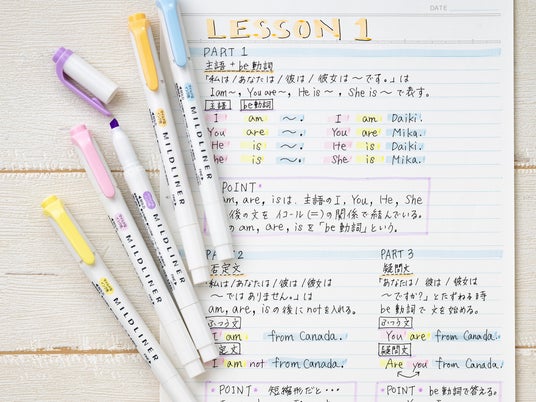 DATE
LESSON 1
PART 1
主語+be動詞
「私は/あなたは/彼は/彼女は〜です。」は
I am〜, You are〜, He is〜, She is〜で表す。
主語 be動詞
I am 〜. I am Daiki.
You are 〜. You are Mika.
He is 〜. He is Daiki.
She is 〜. She is Mika.
POINT
am, are, isは、主語のI, You, He, She
後の文をイコール(=)の関係で結んでいる。
am, are, isを「be動詞」という。
PART 2
否定文
「私は/あなたは/彼は/彼女は
〜ではありません。」は
am, are, isの後にnotを入れる。
ふつう文
I am from Canada.
否定文
I am not from Canada.
POINT 短縮形だと…
PART 3
疑問文
「あなたは/彼は/彼女は
〜ですか?」とたずねる時
be動詞で文を始める。
ふつう文
You are from Canada.
疑問文
Are you from Canada.
POINT be動詞で答える。
MILDLINER
MILDLINER
MILDLINER
MILDLINER
MILDLINER